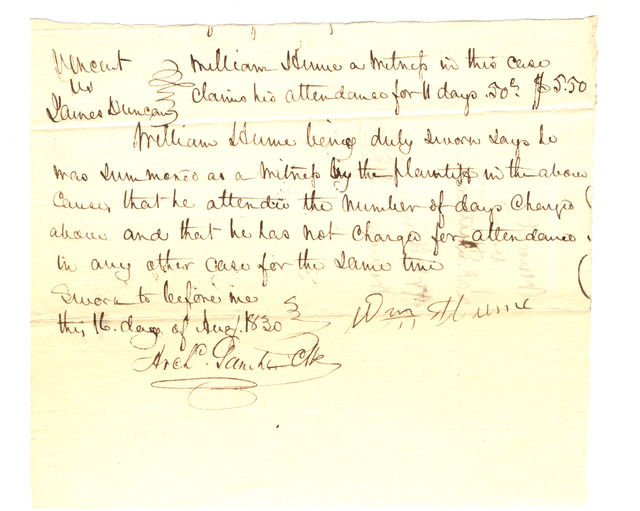 Vincent
vs
James Duncan
William Hume a Witness in this case
Claims his attendance for 11 days .50c $5.50
William Hume being duly sworn says he
was summoned as a Witness by the plaintiff in the above
cause, that he attended the number of days charged
above and that he has not charged for attendance
in any other case for the same time
Sworn to before me
this 16. day of Augt. 1830
Wm Hume
Archd. Clk